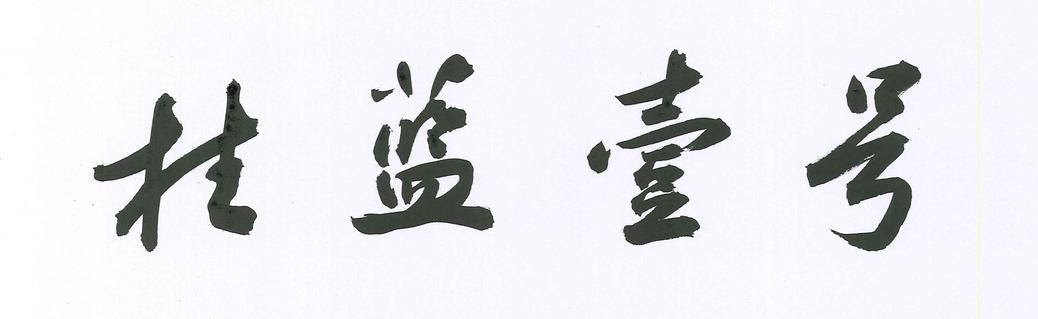 桂蓝壹号